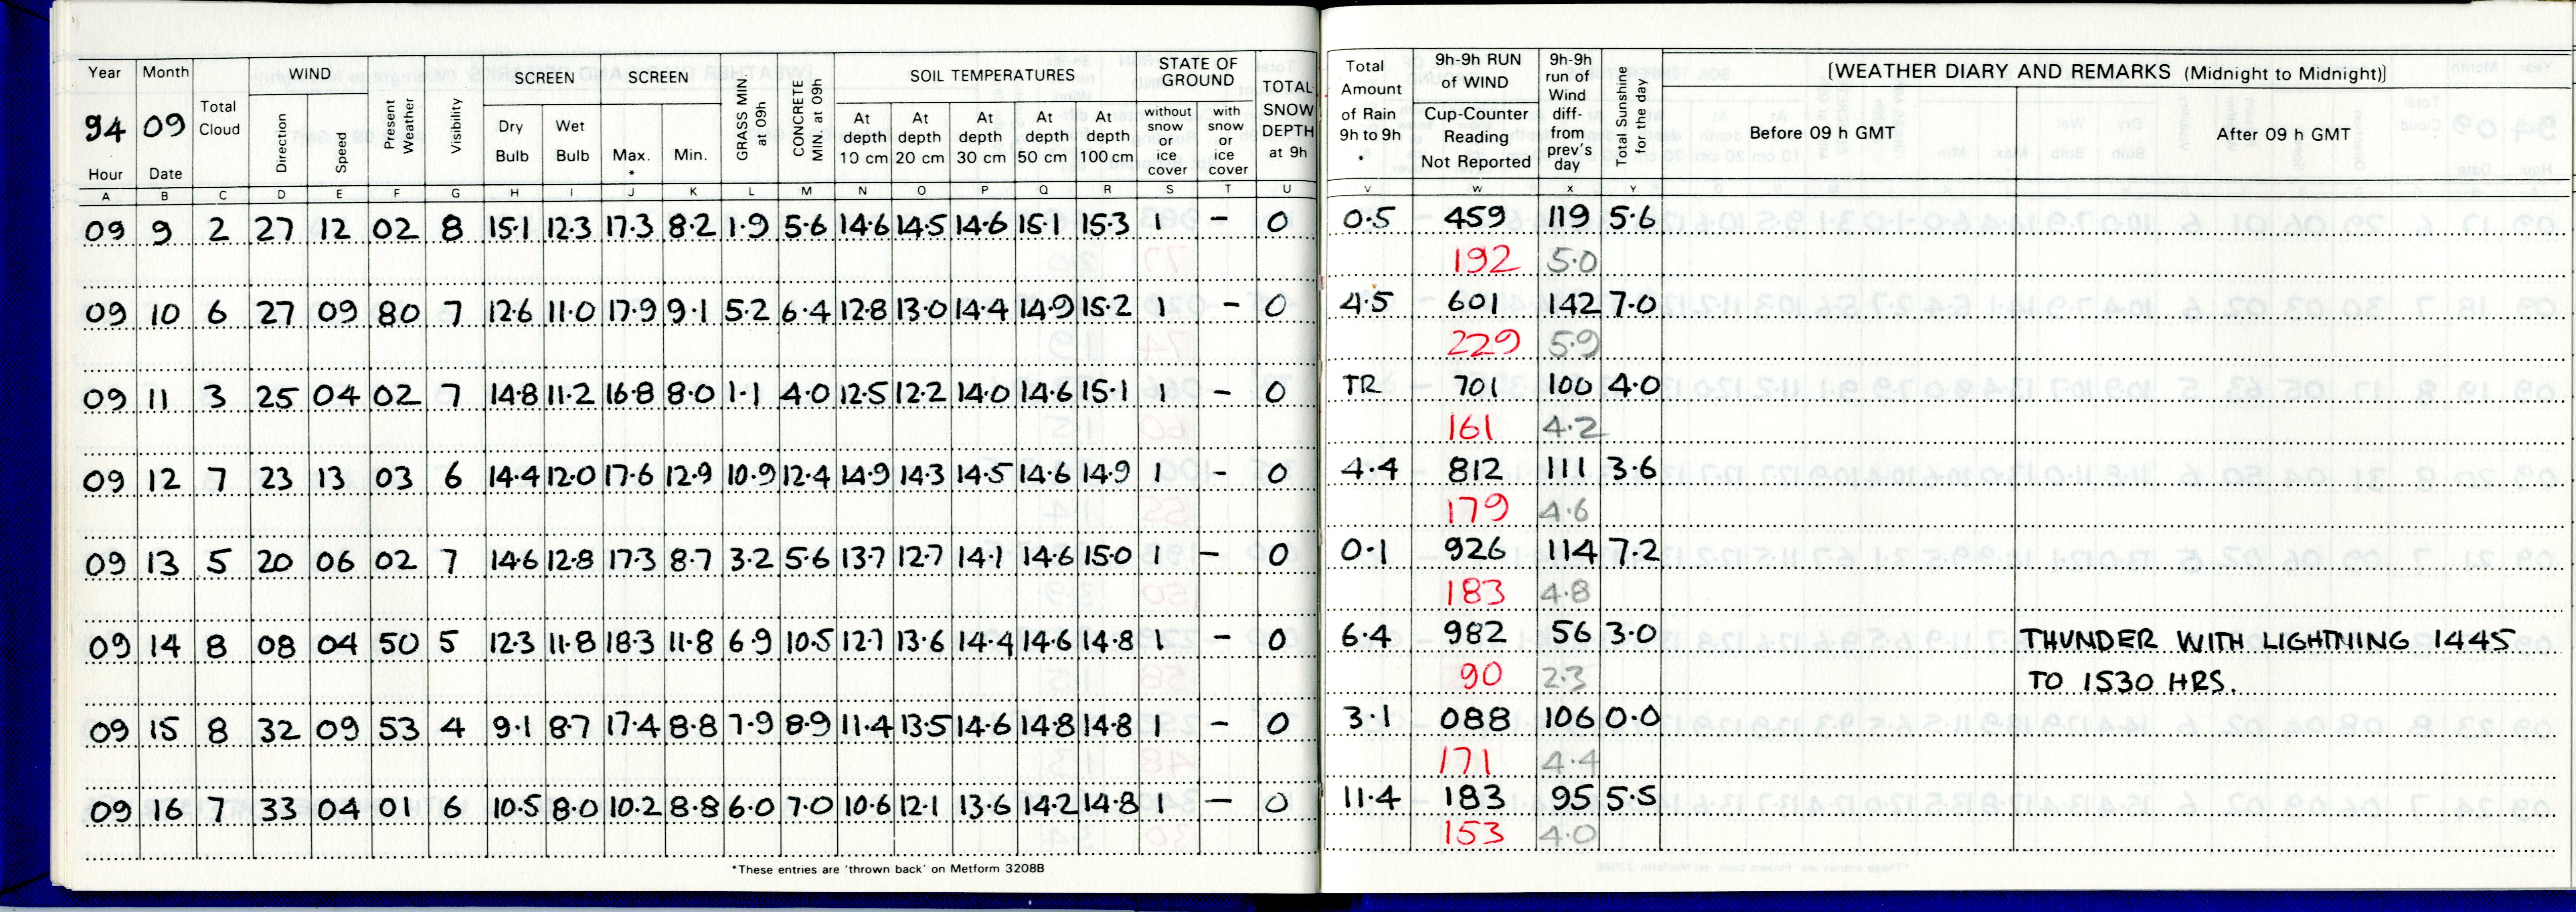 Year Month WIND SCREEN SCREEN SOIL TEMPERATURES STATE OF GROUND
94 09 Total Cloud Direction Speed Present Weather Visibility Dry Bulb Wet Bulb Max. * Min. GRASS MIN at 09h CONCRETE MIN at 09h At depth 10 cm At depth 20 cm At depth 30 cm At depth 50 cm At depth 100 cm without snow or ice cover with snow or ice cover TOTAL SNOW DEPTH at 9h
Hour Date
A B C D E F G H I J K L M N O P Q R S T U
09 9 2 27 12 02 8 15.1 12.3 17.3 8.2 1.9 5.6 14.6 14.5 14.6 15.1 15.3 1 – 0
09 10 6 27 09 80 7 12.6 11.0 17.9 9.1 5.2 6.4 12.8 13.0 14.4 14.9 15.2 1 – 0
09 11 3 25 04 02 7 14.8 11.2 16.8 8.0 1.1 4.0 12.5 12.2 14.0 14.6 15.1 1 – 0
09 12 7 23 13 03 6 14.4 12.0 17.6 12.9 10.9 12.4 14.9 14.3 14.5 14.6 14.9 1 – 0
09 13 5 20 06 02 7 14.6 12.8 17.3 8.7 3.2 5.6 13.7 12.7 14.1 14.6 15.0 1 – 0
09 14 8 08 04 50 5 12.3 11.8 18.3 11.8 6.9 10.5 12.7 13.6 14.4 14.6 14.8 1 – 0
09 15 8 32 09 53 4 9.1 8.7 17.4 8.8 7.9 8.9 11.4 13.5 14.6 14.8 14.8 1 – 0
09 16 7 33 04 01 6 10.5 8.0 10.2 8.8 6.0 7.0 10.6 12.1 13.6 14.2 14.8 1 – 0
*These entries are 'thrown back' on Metform 3208B
Total Amount of Rain 9h to 9h * 9h-9h RUN of WIND Cup-Counter Reading Not Reported 9h-9h run of Wind diff- from prev's day Total Sunshine for the day [WEATHER DIARY AND REMARKS (Midnight to Midnight)]
Before 09 h GMT After 09 h GMT
V W X Y
0.5 459 119 5.6
192 5.0
4.5 601 142 7.0
229 5.9
TR 701 100 4.0
161 4.2
4.4 812 111 3.6
179 4.6
0.1 926 114 7.2
183 4.8
6.4 982 56 3.0 THUNDER WITH LIGHTNING 1445
90 2.3 TO 1530 HRS.
3.1 088 106 0.0
171 4.4
11.4 183 95 5.5
153 4.0